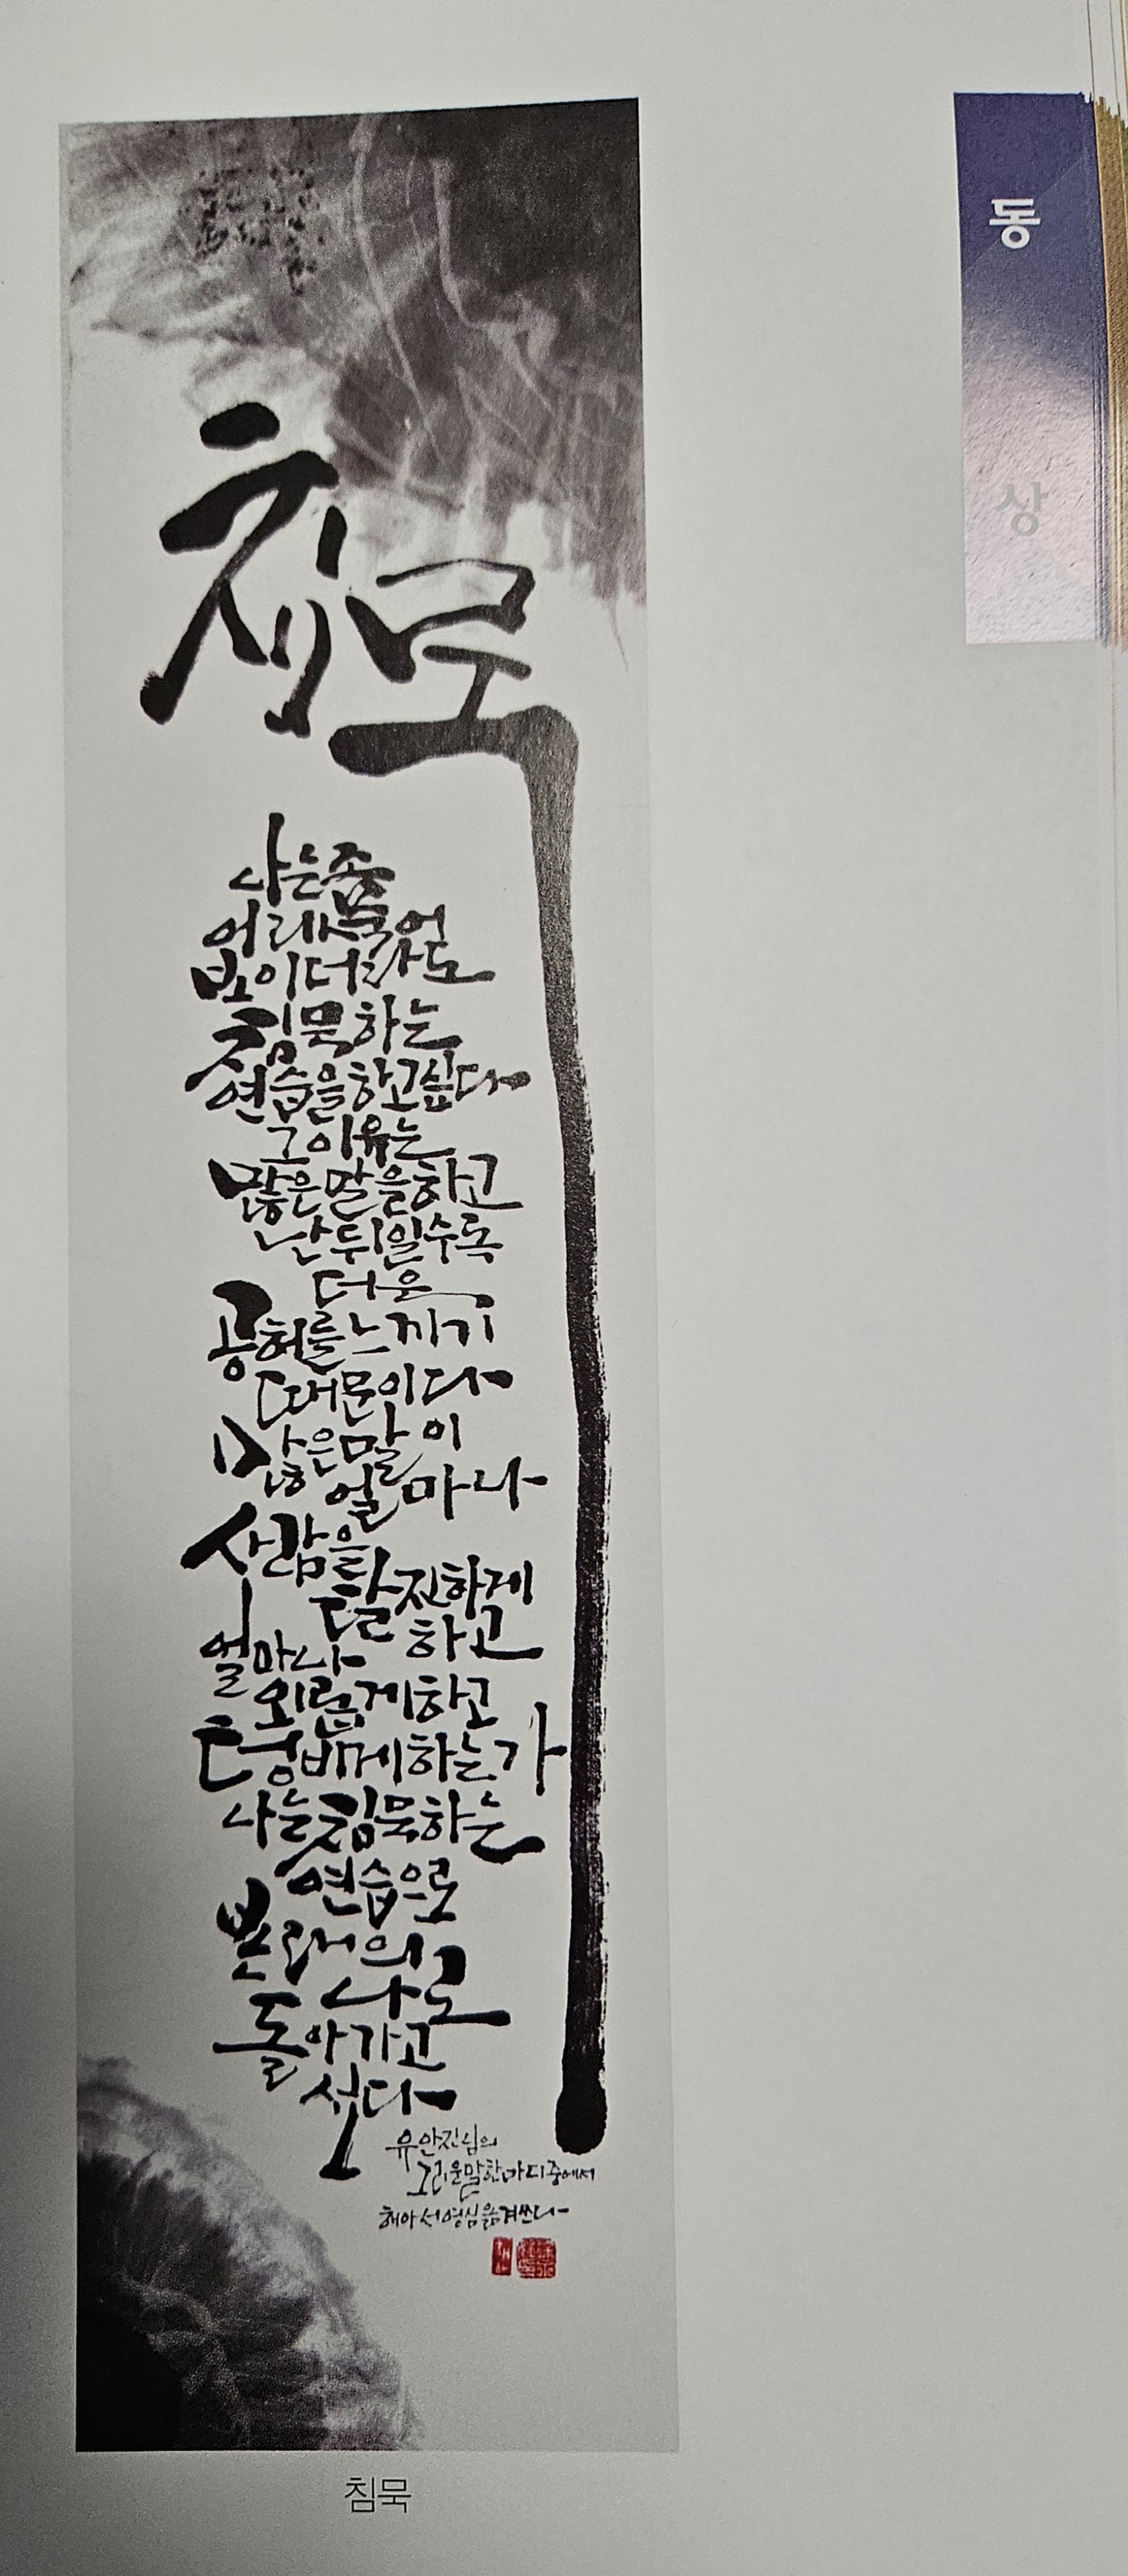 동
상
침묵
나는 좀
어리석어
보이더라도
침묵하는
연습을 하고 싶다
그 이유는
많은 말을 하고
난 뒤일수록
더욱
공허를 느끼기
때문이다
많은 말이
얼마나
사람을
탈진하게
하고
얼마나
외롭게 하고
텅비게 하는가
나는 침묵하는
연습으로
본래의
나로
돌아가고
싶다
유안진님의
그리운 말 한마디 중에서
해아 서영심 옮겨쓴다
침묵